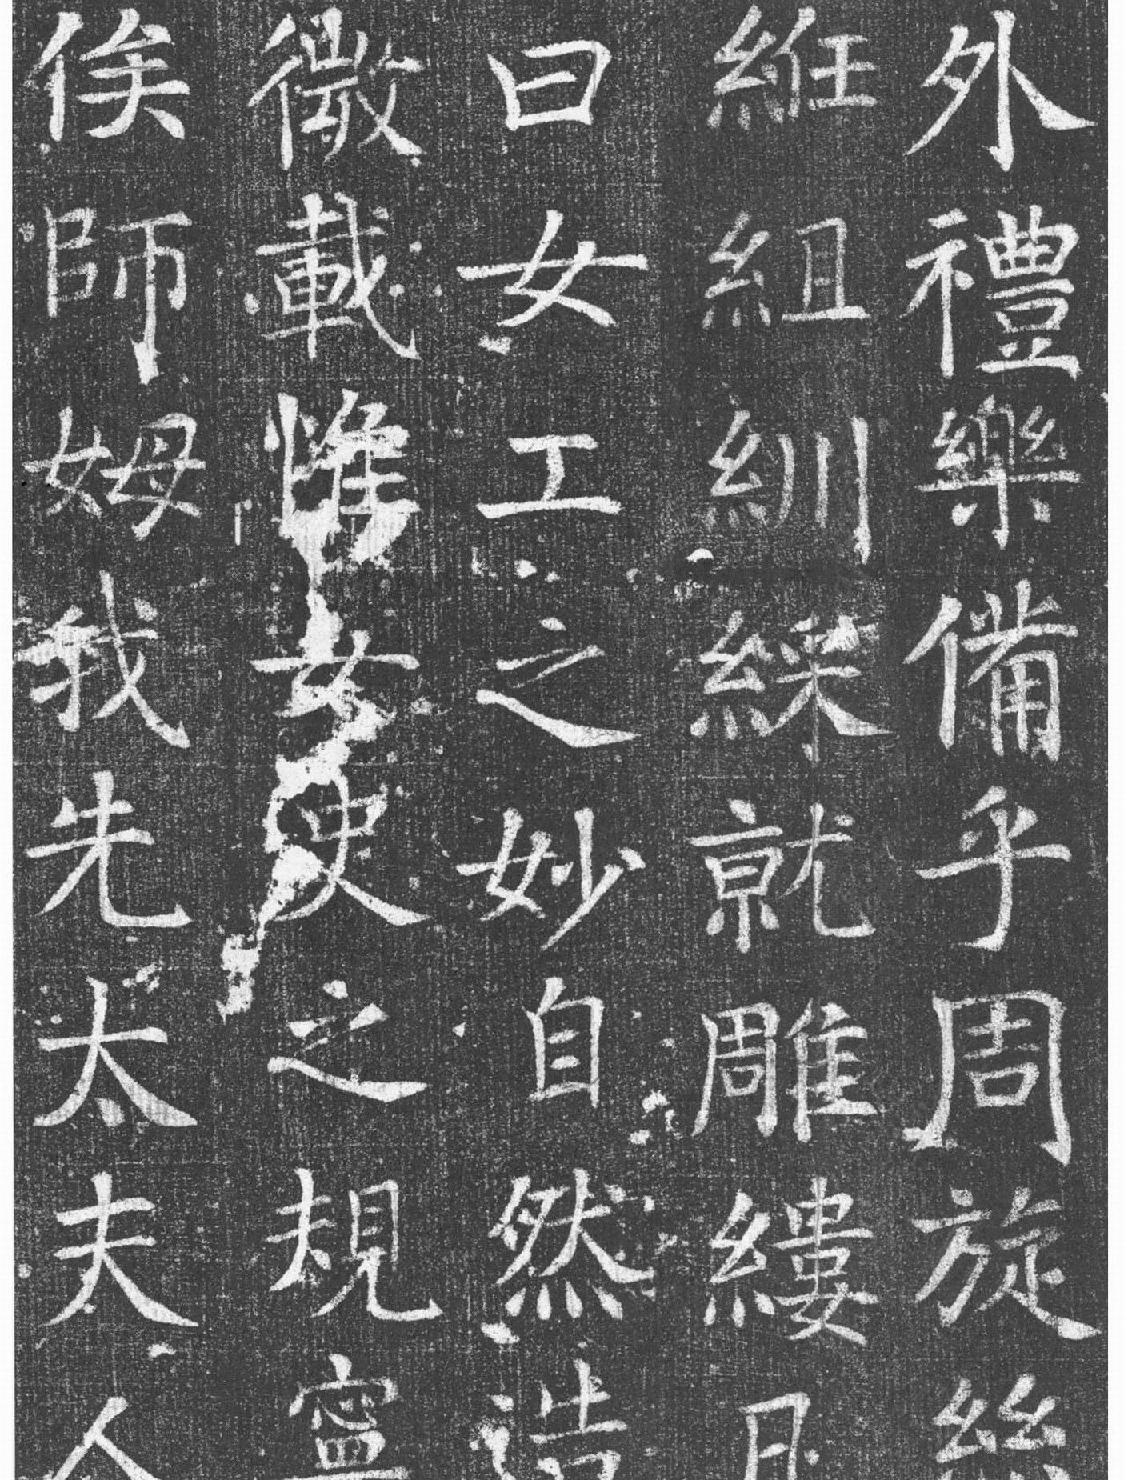 外禮樂備乎周旋絲
絍組紃綵就雕縷月
曰女工之妙自然造
微載惟女史之規寧
俟師姆我先太夫人